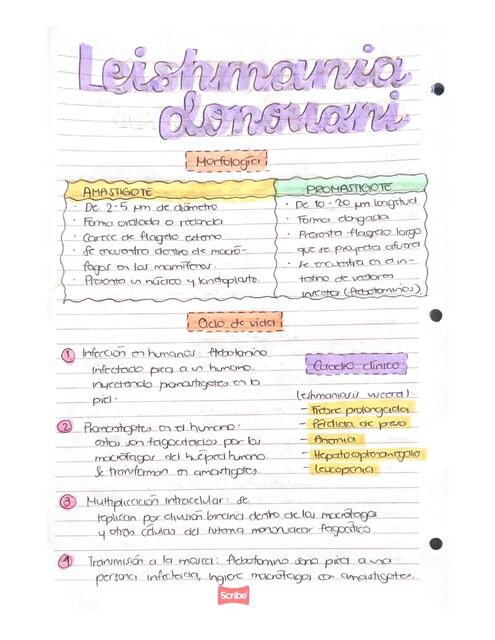 Leishmania
donovani
Morfología
AMASTIGOTE
· De 2-5 µm de diámetro
· Forma ovalada o redonda
· Carece de flagelo externo
· Se encuentra dentro de macró-
fagos en los mamíferos.
· Presenta un núcleo y kinetoplasto.
PROMASTIGOTE
· De 10-20 µm longitud
· Forma elongada
· Presenta flagelo largo
que se proyecta afuera
· Se encuentra en el in-
testino de vectores
insectos (flebotominos)
Ciclo de vida
1 Infección en humanos: flebotomino
infectado pica a un humano,
inyectando promastigotes en la
piel.
2 Promastigotes en el humano:
estos son fagocitados por los
macrófagos del huésped humano.
Se transforman en amastigotes.
Cuadro clínico
Leishmaniasis visceral:
- Fiebre prolongada
- Pérdida de peso
- Anemia
- Hepatoesplenomegalia
- Leucopenia
3 Multiplicación intracelular: se
replican por división binaria dentro de los macrófagos
y otras células del sistema mononuclear fagocítico.
4 Transmisión a la mosca: flebotomino sano pica a una
persona infectada, ingiere macrófagos con amastigotes.
Scribe